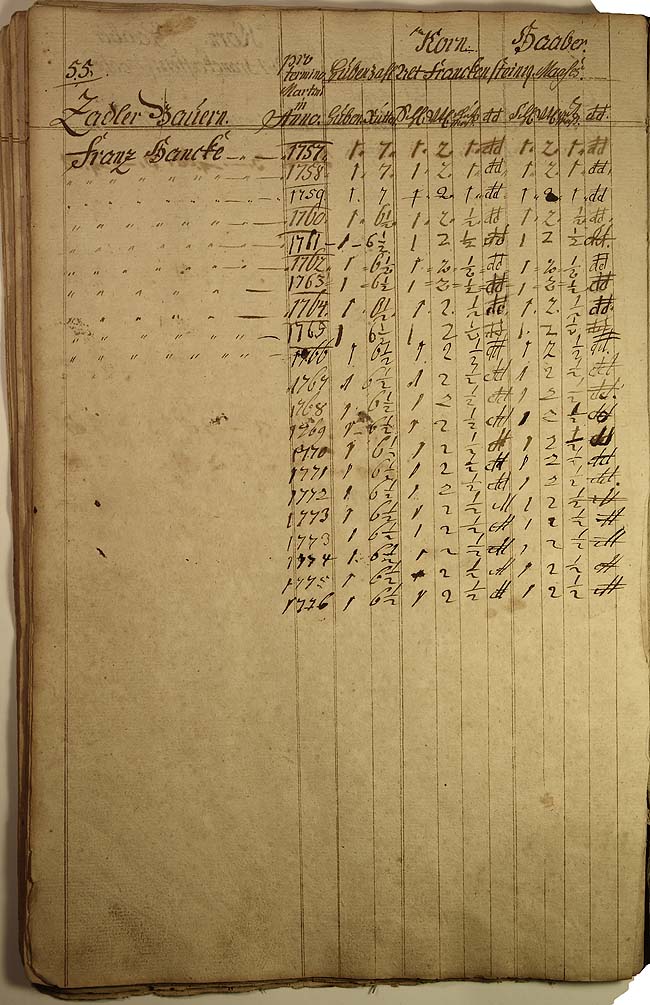 Korn. Haaber.
55. pro termino Martini in
Zadler Bauern. Anno.
Franz Hancke 1757. 1. 7. 1. 2. 1. dd 1. 2. 1. dd.
1758. 1. 7. 1. 2. 1. dd. 1. 2. 1. dd.
1759. 1. 7 1 2 1. dd. 1. 2 1. dd
1760 1. 6½ 1. 2. ½ dd 1. 2. ½ dd.
1761 1 6½ 1 2 ½ dd 1 2 ½ dd.
1762 1. 6½ 1. 2. ½ dd 1. 2. ½ dd
1763 1 6½ 1 2 ½ dd 1. 2 ½ dd
1764 1. 6½ 1. 2. ½ dd 1. 2. ½ dd.
1765 1 6½ 1 2 ½ dd 1. 2 ½ dd
1766 1 6½ 1. 2 ½ dd 1 2 ½ dd.
1767 1 6½ 1 2 ½ dd 1 2 ½ dd
1768 1 6½ 1 2 ½ dd 1 2 ½ dd.
1769 1 6½ 1 2 ½ dd 1 2 ½ dd
1770 1 6½ 1 2 ½ dd 1 2 ½ dd
1771 1 6½ 1 2 ½ dd 1 2 ½ dd
1772 1. 6½ 1 2 ½ dd 1 2 ½ dd.
1773 1 6½ 1 2 ½ dd 1 2 ½ dd
1773 1 6½ 1 2 ½ dd 1 2 ½ dd
1774 1. 6½ 1 2 ½ dd 1 2 ½ dd
1775 1 6½ 1 2 ½ dd 1 2 ½ dd
1776 1 6½ 1 2 ½ dd 1 2 ½ dd